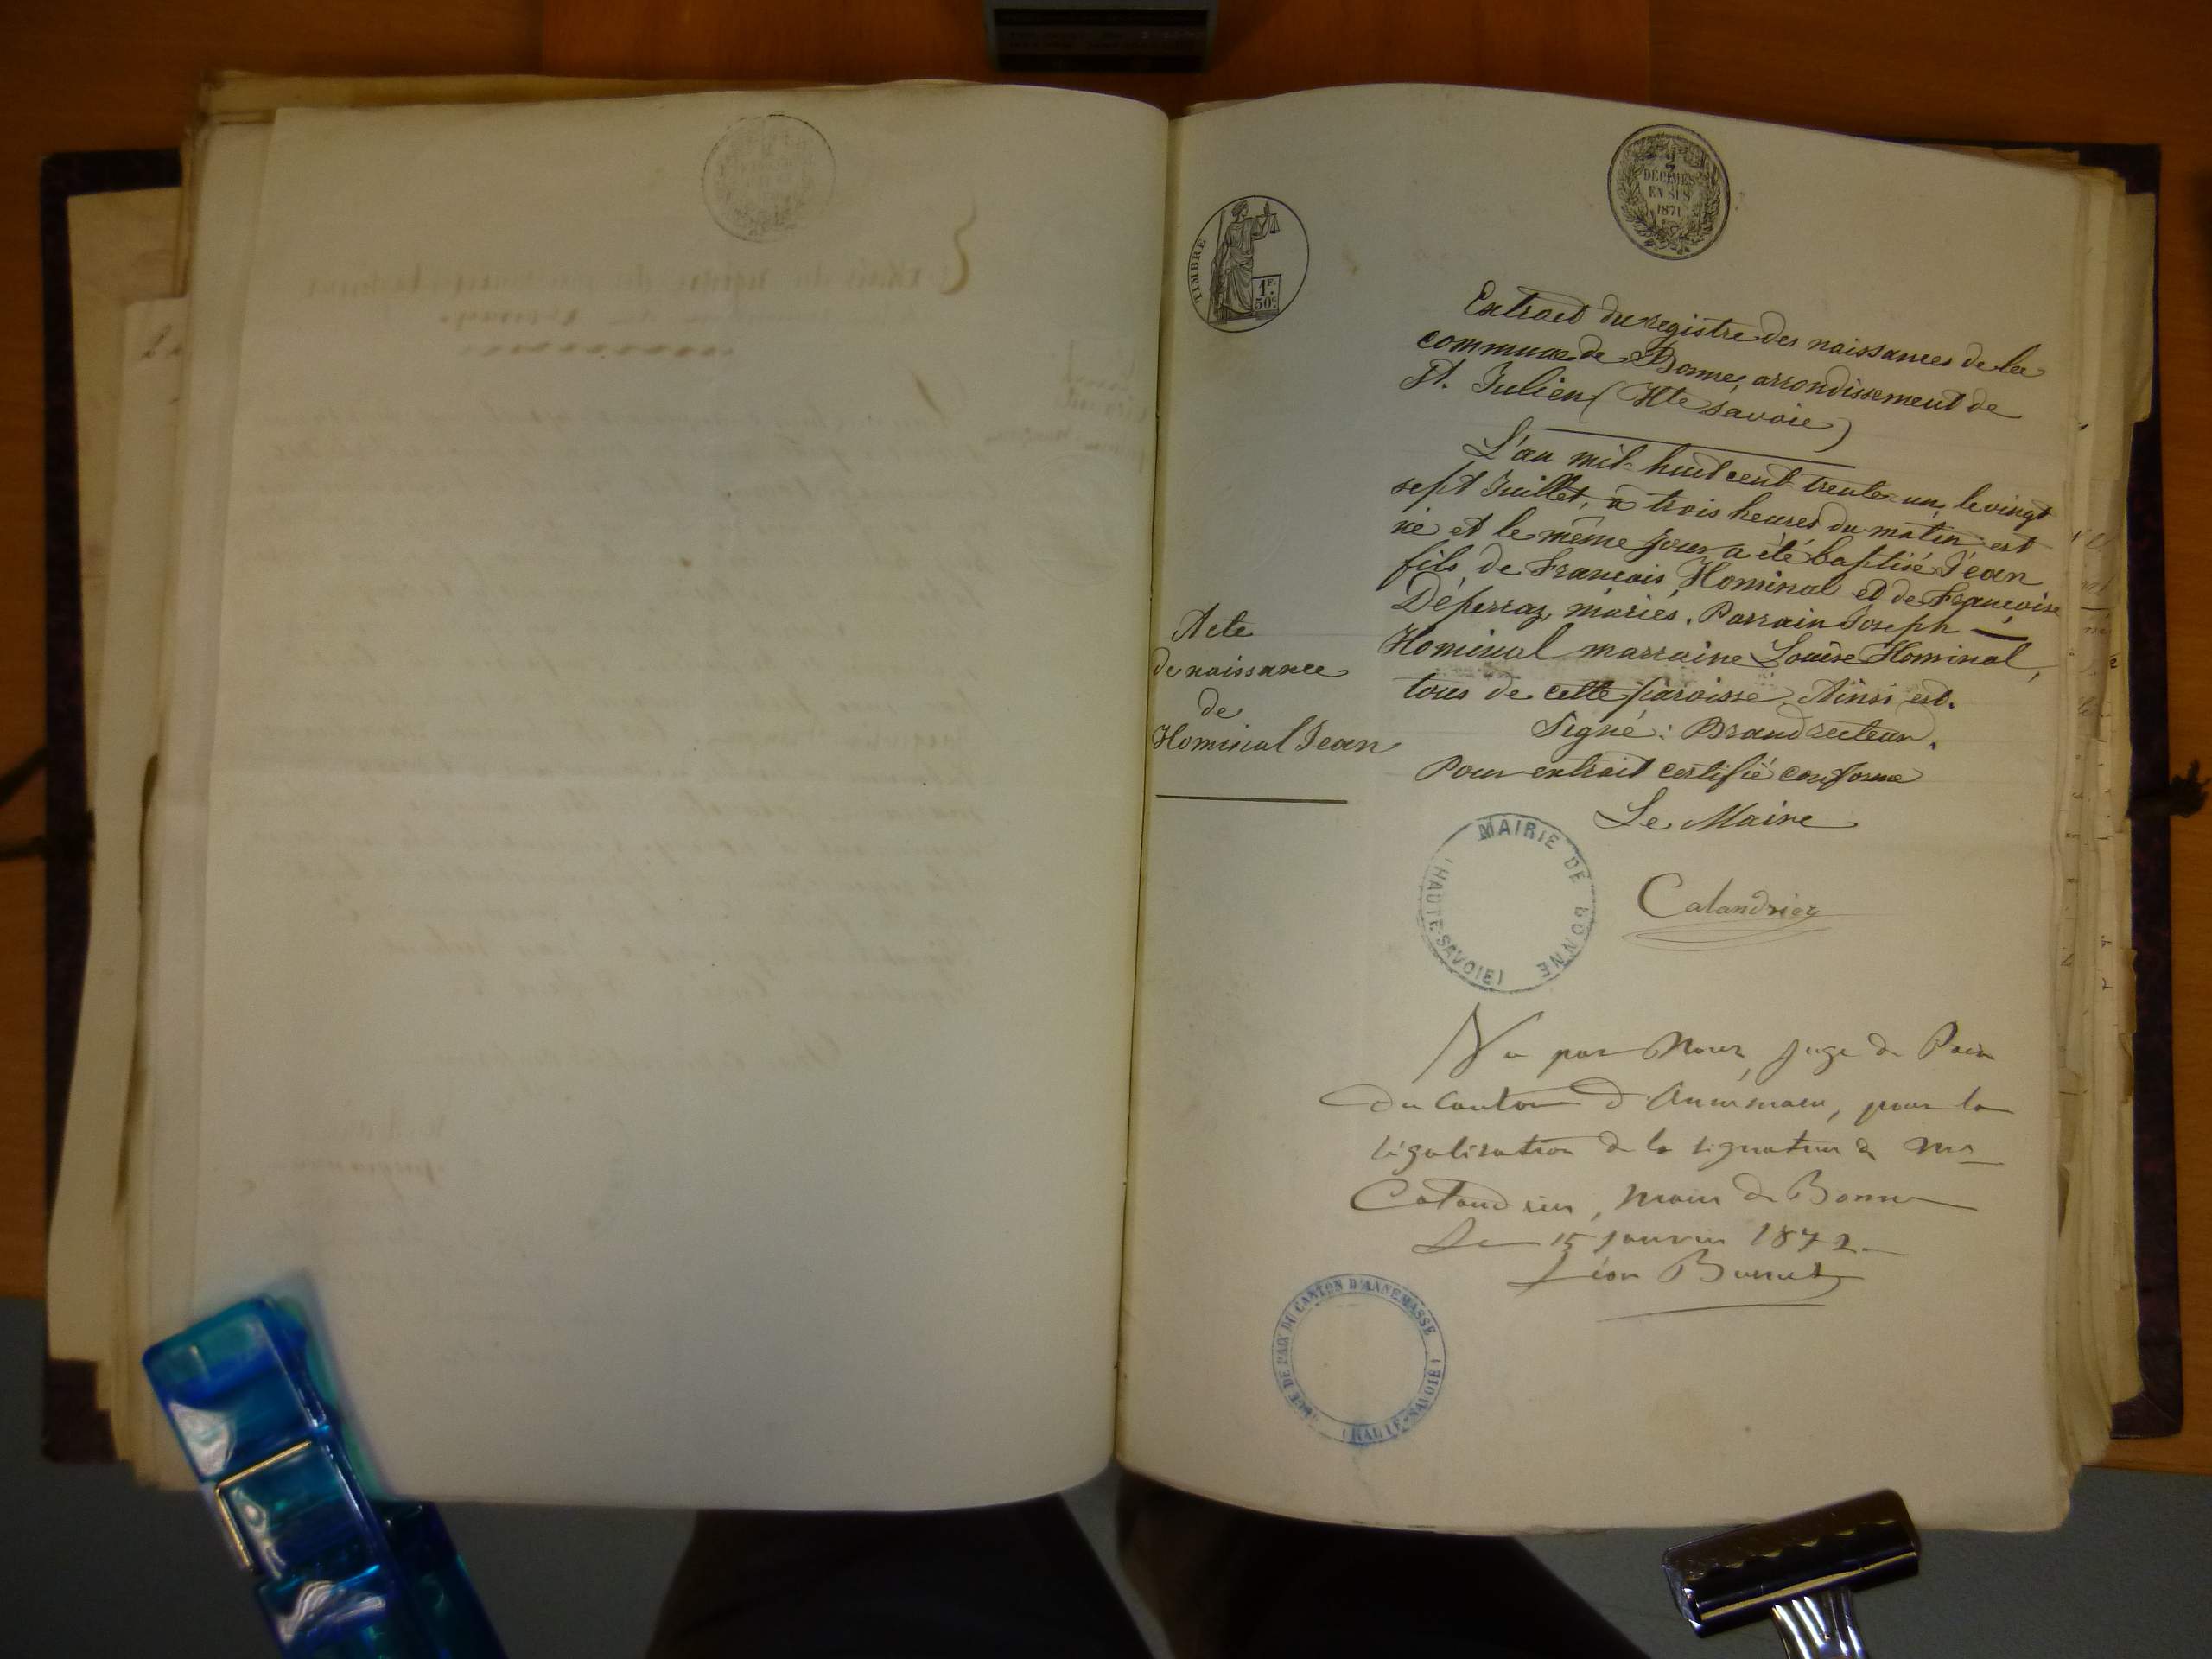 2
DÉCIMES
EN SUS
1871
TIMBRE
1F.
50c.
Extrait du registre des naissances de la
commune de Bonne, arrondissement de
St. Julien (Hte Savoie)
L'an mil-huit cent trente-un, le vingt
sept Juillet, à trois heures du matin est
né et le même jour a été baptisé Jean
fils de François Hominal et de Françoise
Déperraz, mariés. Parrain Joseph —
Hominal marraine Louise Hominal,
tous de cette paroisse. Ainsi est.
Signé: Brand recteur.
Pour extrait certifié conforme
Le Maire
Acte
de naissance
de
Hominal Jean
MAIRIE DE BONNE
(HAUTE-SAVOIE)
Calandrier
Vu par Nous, Juge de Paix
du Canton d'Annemasse, pour la
légalisation de la signature de Mr
Calandrier, Maire de Bonne
Le 15 Janvier 1872.
Léon
JUGE DE PAIX DU CANTON D'ANNEMASSE
(HAUTE-SAVOIE)